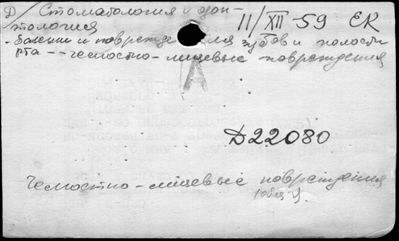 Д/ Стоматология и одон-
тология
II/XII-59 ER
- Болезни и повреждения зубов и полости
рта -- челюстно-лицевые повреждения
А
D22080
Челюстно-лицевые повреждения